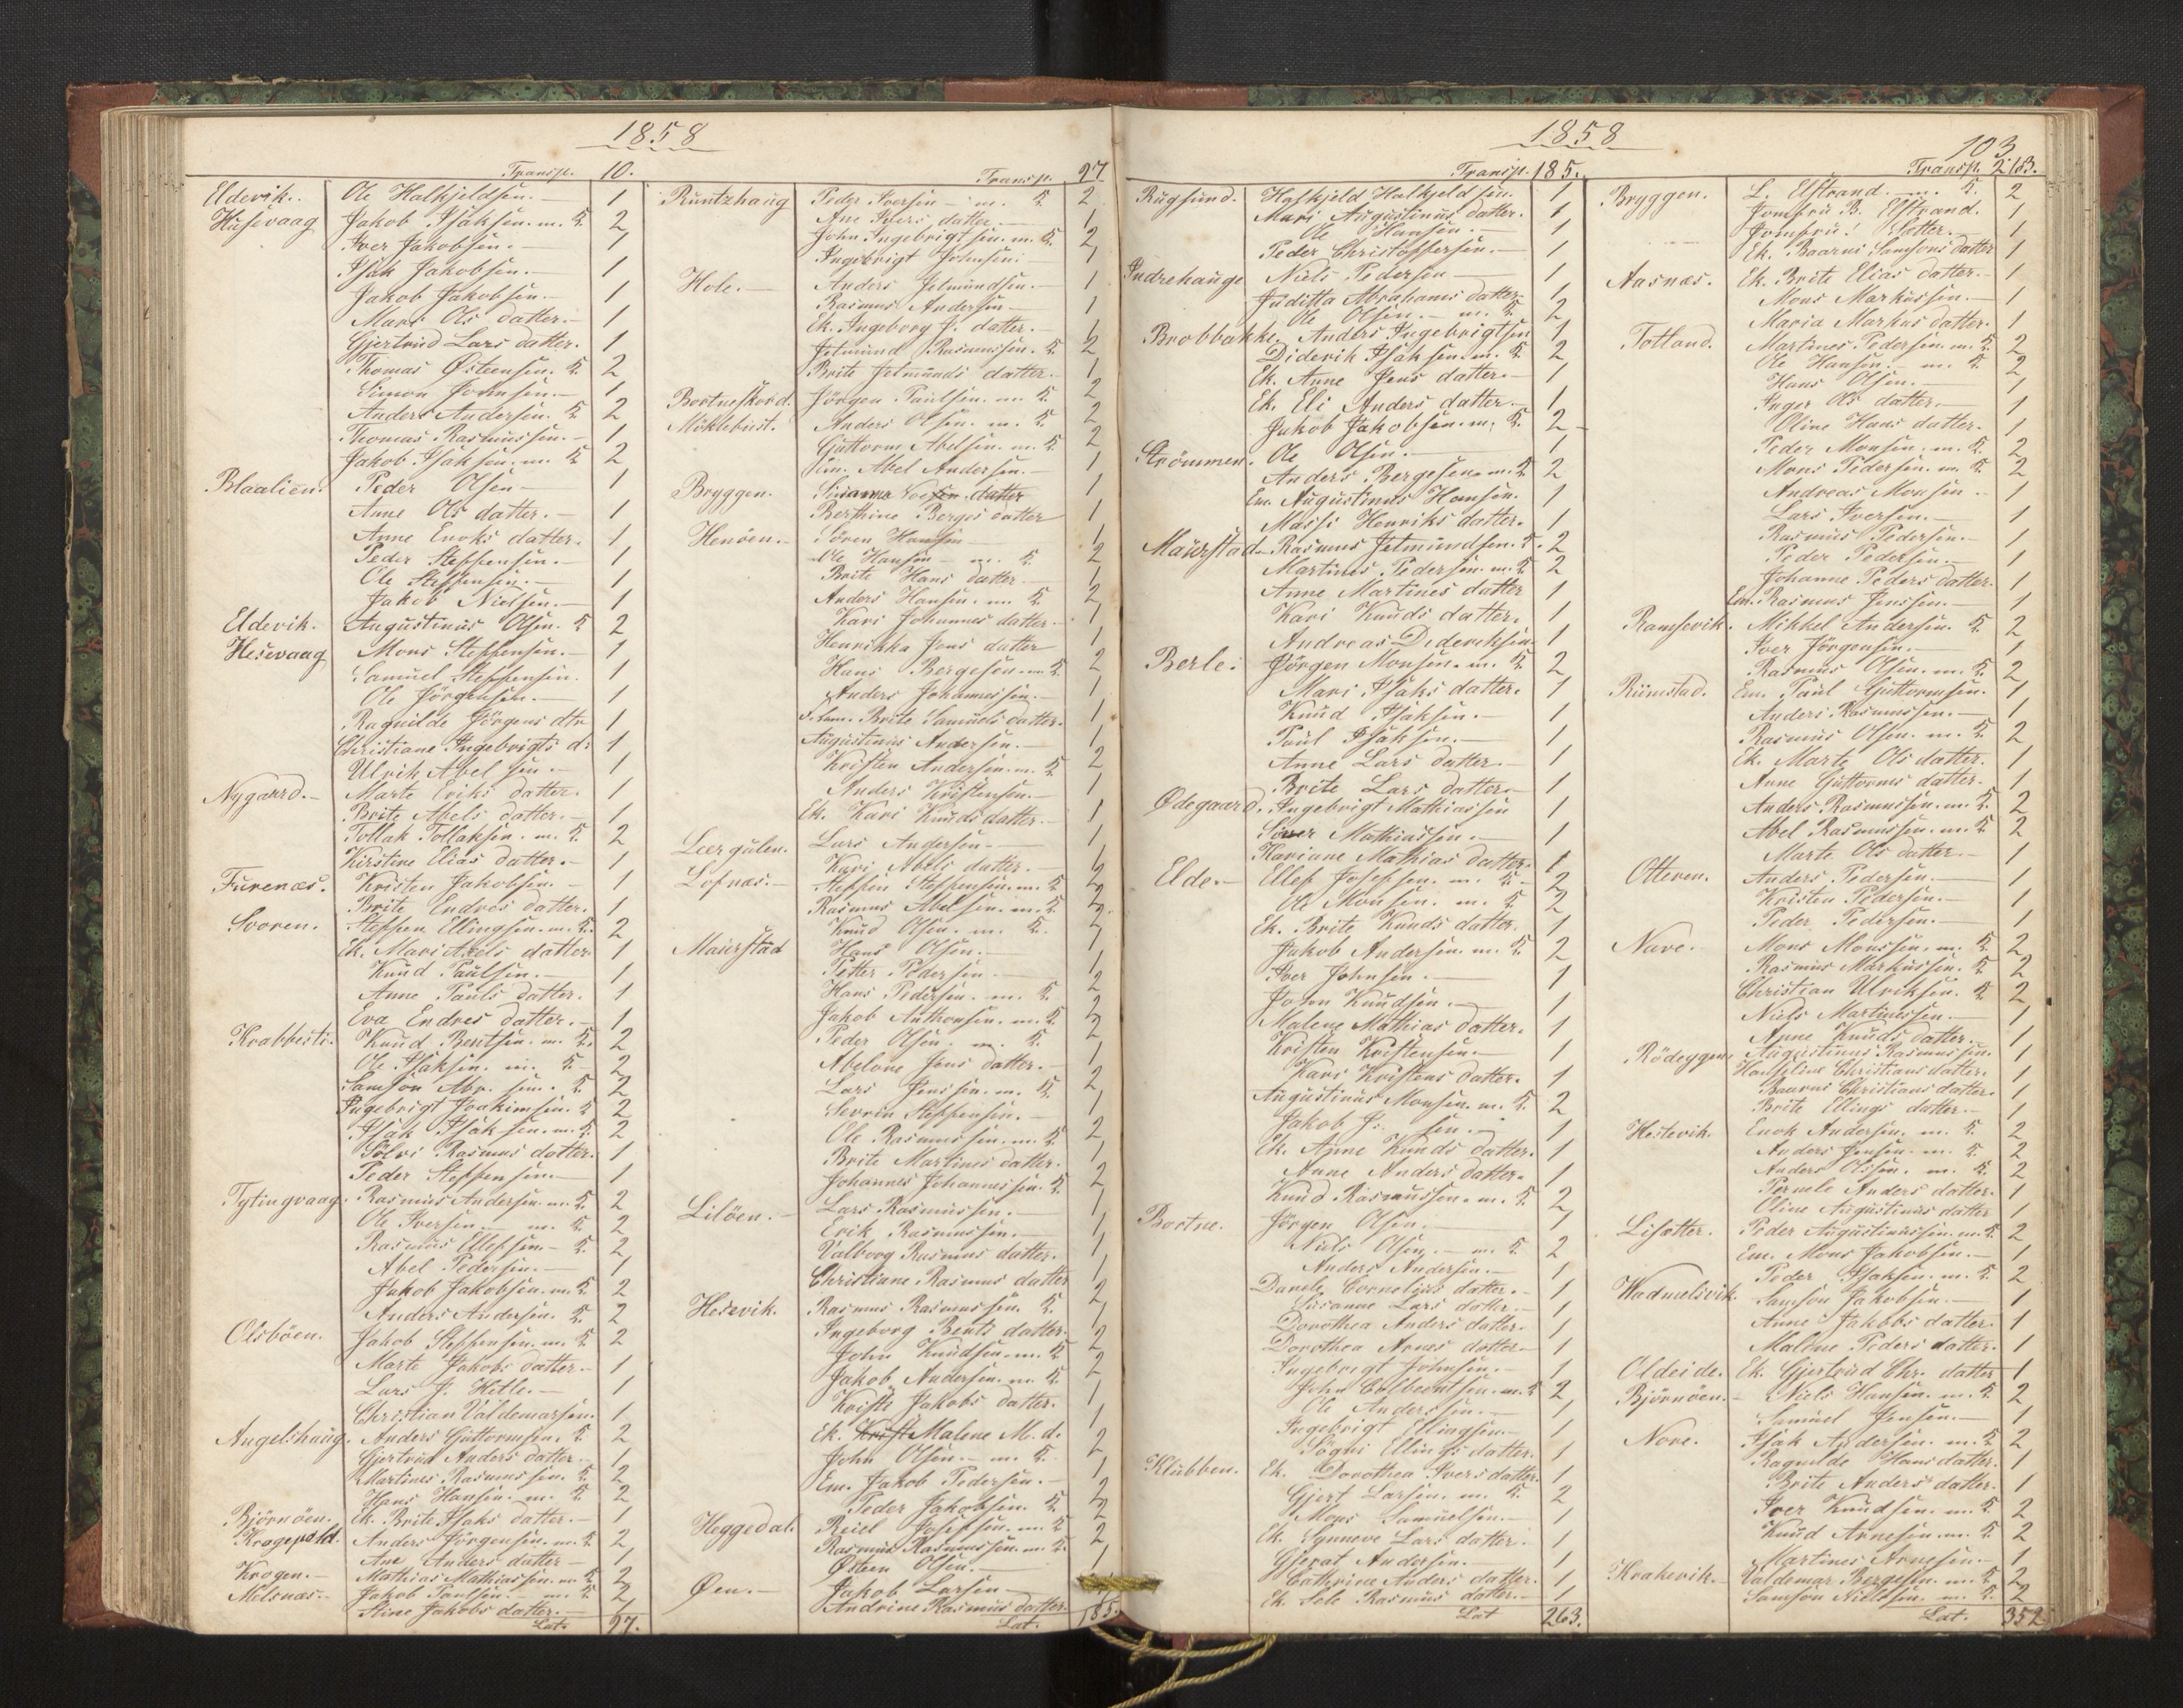 1858
Transp. 10.
Eldevik. Ole Halkjeldsen. 1
Husevaag Jakob Isaksen. m. K. 2
Iver Jakobsen. 1
Isak Jakobsen. 1
Jakob Jakobsen. 1
Mari Ols datter. 1
Gjertrud Lars datter. 1
Thomas Østensen. K. 2
Simon Johnsen. 1
Anders Andersen. K. 2
Thomas Rasmussen. 1
Jakob Isaksen. m. K. 2
Blaalien. Peder Olsen 1
Anne Ols datter. 1
Anne Enoks datter. 1
Peder Steffensen. 1
Ole Steffensen. 1
Jakob Nielsen. 1
Eldevik. Augustinus Olsen. K. 2
Husevaag Mons Steffensen. 1
Samuel Steffensen. 1
Ole Jörgensen. 1
Ragnilde Jörgens dtr 1
Christiane Ingebrigts d: 1
Ulrik Abelsen. 1
Nygaard. Marte Eriks datter. 1
Brite Abels datter. 1
Tollak Tollaksen. m. K. 2
Kirstine Elias datter. 1
Furenæs. Kristen Jakobsen. 1
Brite Endres datter. 1
Svoren. Steffen Ellingsen. m. K. 2
Ek. Mari Axels datter 1
Knud Paulsen. 1
Anne Pauls datter. 1
Eva Endres datter. 1
Krabbesti. Knud Bentsen. m. K. 2
Ole Isaksen. m. K. 2
Samson Abr. sen. K. 2
Ingebrigt Joakimsen. K. 2
Isak Isaksen. m. K. 2
Sölvi Rasmus datter. 1
Peder Steffensen. 1
Tytingvaag. Rasmus Andersen. m. K. 2
Ole Iversen. m. K. 2
Rasmus Ellefsen. K. 2
Abel Pedersen. 1
Jakob Jakobsen. m. K. 2
Anders Andersen. K. 2
Olsböen. Jakob Steffensen. m. K. 2
Marte Jakobs datter. 1
Lars J. Hetle. 1
Christian Valdemarsen. 1
Angelshaug. Anders Guttormsen. K. 2
Gjertrud Anders datter. 1
Martines Rasmussen. K. 2
Hans Hansen. m. K. 2
Björnöen. Ek. Brite Isaks datter. 1
Kragepold. Anders Jörgensen. m. K. 2
Ane Anders datter 1
Krogen. Mathias Mathiassen. m. K. 2
Melsnæs. Jakob Paulsen. m. K. 2
Stine Jakobs datter. 1
Lat. 97.
Transp. 97
Runtzhaug Peder Iversen m. K. 2
Ane Ivers datter. 1
John Ingebrigtsen. m. K. 2
Ingebrigt Johnsen. 1
Hole. Anders Jetmundsen. 1
Rasmus Andersen 1
Ek. Ingeborg J. datter. 1
Jetmund Rasmussen. K. 2
Brite Jetmunds datter. 1
Bortneskard. Jörgen Paulsen. m. K. 2
Möklebust. Anders Olsen. m. K. 2
Guttorm Abelsen. m. K. 2
Em. Abel Andersen. 1
Bryggen. Susanna datter 1
Berthine Berges datter 1
Henöen. Sören Hansen 1
Ole Hansen m. K. 2
Brite Hans datter. 1
Anders Hansen. m. K. 2
Kari Johannes datter. 1
Henrikka Jens datter 1
Hans Bergesen. m. K. 2
Anders Johannessen. 1
Brite Samuels datter. 1
Augustinus Andersen. 1
Kristen Andersen. m. K. 2
Anders Kristensen. 1
Ek. Kari Knuds datter. 1
Leergulen. Lars Andersen 1
Kari Abels datter. 1
Lofnæs. Steffen Steffensen. m. K. 2
Rasmus Abelsen. m. K. 2
Knud Olsen. m. K. 2
Maurstad Hans Olsen. 1
Petter Pedersen. 1
Hans Pedersen. m. K. 2
Jakob Anthonsen. m. K. 2
Peder Olsen. m. K. 2
Abelone Jens datter. 1
Lars Jenssen. m. K. 2
Severin Steffensen. 1
Ole Rasmussen. m. K. 2
Brite Martines datter. 1
Johannes Johannessen. K. 2
Lilöen. Lars Rasmussen. 1
Erik Rasmussen. 1
Valborg Rasmus datter. 1
Christiane Rasmus datter 1
Hesevik. Rasmus Rasmussen. K. 2
Ingeborg Bents datter. 1
John Knudsen. m. K. 2
Jakob Andersen. m. K. 2
Kristi Jakobs datter. 1
Ek. Kristi Malene M. d. 1
John Olsen. m. K. 2
Em. Jakob Pedersen. 1
Peder Jakobsen. K. 2
Heggedal. Reiel Josefsen. m. K. 2
Rasmus Rasmussen. m. K. 2
Østen Olsen. 1
Øen. Jakob Larsen 1
Andrine Rasmus datter. 1
Lat. 185.
1858
103
Transp. 185.
Rugsund. Halkjeld Halkjeldsen. 1
Mari Augustinus datter. 1
Ole Hansen. 1
Peder Christoffersen. 1
Indrehauge Niels Pedersen 1
Juditta Abrahams datter 1
Ole Olsen. m. K. 2
Brobbakke. Anders Ingebrigtsen 1
Diderik Isaksen. m. K. 2
Ek. Anne Jens datter. 1
Ek. Eli Anders datter. 1
Jakob Jakobsen. m. K. 2
Strömmen. Ole Olsen. 1
Anders Bergesen. m. K. 2
Em. Augustinus Hansen. 1
Massi Henriks datter. 1
Maurstad. Rasmus Jetmundsen. K. 2
Martines Pedersen. m. K. 2
Anne Martines datter 1
Kari Knuds datter. 1
Andreas Dideriksen 1
Berle. Jörgen Monsen. m. K. 2
Mari Isaks datter. 1
Knud Isaksen. 1
Paul Isaksen. 1
Anne Lars datter. 1
Brite Lars datter 1
Ødegaard. Ingebrigt Mathiassen 1
Mathiassen. 1
Kariane Mathias datter. 1
Elde. Ellef Josefsen. m. K. 2
Ole Monsen. m. K. 2
Ek. Brite Knuds datter. 1
Jakob Andersen. m. K. 2
Iver Johnsen. 1
John Knudsen. 1
Malene Mathias datter. 1
Kristen Kristensen. 1
Kari Kristens datter. 1
Augustinus Monsen. m. K. 2
Jakob J. sen. 1
Ek. Anne Knuds datter. 1
Anne Anders datter. 1
Knud Rasmussen. m. K. 2
Bortne. Jörgen Olsen. 1
Niels Olsen. m. K. 2
Anders Andersen. 1
Danele Cornelius datter. 1
Susanne Lars datter. 1
Dorothea Anders datter. 1
Dorothea Arnes datter 1
Ingebrigt Johnsen. 1
John Colbentsen. m. K. 2
Ole Anderssen. 1
Ingebrigt Ellingsen. 1
Sögni Ellings datter. 1
Klubben. Ek. Dorothea Ivers datter. 1
Gjert Larsen. m. K. 2
Mons Samuelsen. 1
Ek. Synneve Lars datter. 1
Gjerat Andersen. 1
Cathrine Anders datter. 1
Ek. Sele Rasmus datter. 1
Lat 263.
Transp. 263.
Bryggen. L. Elstrand. m. K. 2
Jomfru B. Elstrand. 1
Jomfru Sletter. 1
Ek. Baarni Samsons datter 1
Aasnæs. Ek. Brite Elias datter. 1
Mons Markussen. 1
Maria Markus datter. 1
Totland. Martines Pedersen. m. K. 2
Ole Hansen. m. K. 2
Hans Olsen. 1
Inger Ols datter. 1
Oline Hans datter. 1
Peder Monsen. m. K. 2
Mons Pedersen. m. K. 2
Andreas Monsen 1
Lars Iversen. 1
Rasmus Pedersen. 1
Peder Pedersen. 1
Johanne Peders datter. 1
Em. Rasmus Jenssen. 1
Ramsevik. Mikkel Andersen. K. 2
Iver Jörgensen. 1
Rasmus Olsen. m. K. 2
Rimstad. Em. Paul Guttormsen. 1
Anders Rasmussen. 1
Rasmus Olsen. m. K. 2
Ek. Marte Ols datter. 1
Anne Guttorms datter. 1
Anders Rasmussen. m. K. 2
Abel Rasmussen. m. K. 2
Marte Ols datter. 1
Otteren. Anders Pedersen. 1
Kristen Pedersen. 1
Peder Pedersen. 1
Nave. Mons Monssen. m. K. 2
Rasmus Markussen. K. 2
Christian Ulriksen. K. 2
Niels Martinussen. 1
Anne Knuds datter. 1
Rödeygen Augustinus Rasmussen. 1
Hanseline Christians datter. 1
Baarni Christians datter. 1
Brite Ellings datter. 1
Hestevik. Enok Andersen. m. K. 2
Anders Jensen. m. K. 2
Anders Olssen. m. K. 2
Pernele Anders datter. 1
Oline Augustinus datter 1
Lisætter. Peder Augustinussen. m. K. 2
Em. Mons Jakobsen. 1
Peder Isaksen. m. K. 2
Wadmelsvik. Samson Jakobsen. 1
Anne Jakobs datter. 1
Malene Peders datter. 1
Oldeide. Ek. Gjertrud Chr. datter 1
Björnöen. Niels Hansen. m. K. 2
Samuel Jensen. 1
Nore. Isak Andersen. m. K. 2
Ragnilde Hans datter. 1
Brite Anders datter. 1
Iver Knudsen. m. K. 2
Knud Arnesen. m. K. 2
Martines Arnesen. 1
Krakevik. Valdemar Bergesen. m. K. 2
Samson Nielssen. m. K. 2
Lat. 352